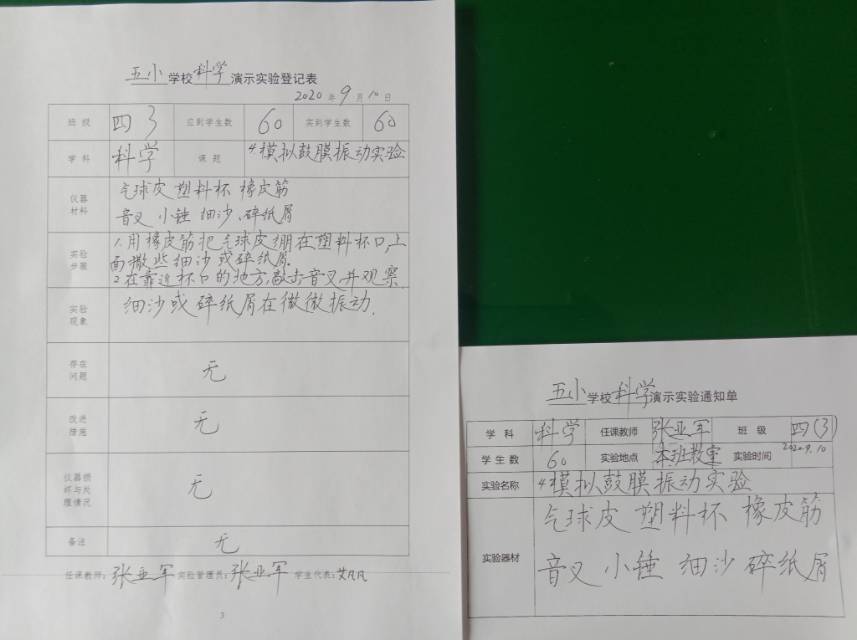 五小学校科学演示实验登记表
2020年9月10日
班 级 四3 应到学生数 60 实到学生数 60
学 科 科学 课 题 4模拟鼓膜振动实验
仪器材料 气球皮 塑料杯 橡皮筋
音叉 小锤 细沙、碎纸屑
实验步骤 1.用橡皮筋把气球皮绷在塑料杯口,上
面撒些细沙或碎纸屑.
2在靠近杯口的地方,敲击音叉并观察.
实验现象 细沙或碎纸屑在微微振动.
存在问题 无
改进措施 无
仪器损坏与处理情况 无
备注 无
任课教师:张亚军 实验管理员:张亚军 学生代表:艾凡凡
3
五小学校科学演示实验通知单
学 科 科学 任课教师 张亚军 班 级 四(3)
学 生 数 60 实验地点 本班教室 实验时间 2020.9.10
实验名称 4模拟鼓膜振动实验
实验器材 气球皮 塑料杯 橡皮筋
音叉 小锤 细沙 碎纸屑